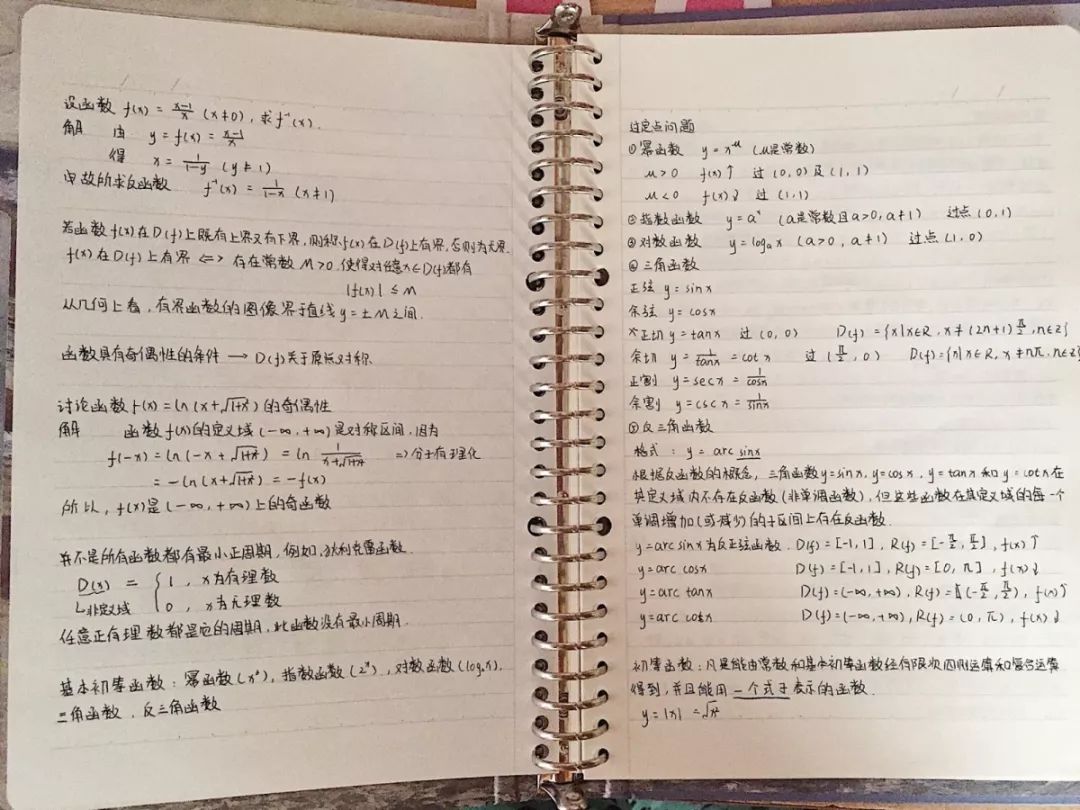 设函数 f(x) = \frac{x-1}{x} (x≠0), 求 f⁻¹(x).
解 由 y = f(x) = \frac{x-1}{x}
得 x = \frac{1}{1-y} (y≠1)
故所求反函数 f⁻¹(x) = \frac{1}{1-x} (x≠1)
若函数 f(x) 在 D(f) 上既有上界又有下界, 则称 f(x) 在 D(f) 上有界, 否则为无界.
f(x) 在 D(f) 上有界 <=> 存在常数 M>0, 使得对任意 x∈D(f) 都有
|f(x)| ≤ M
从几何上看, 有界函数的图像界于直线 y = ±M 之间.
函数具有奇偶性的条件 → D(f) 关于原点对称.
讨论函数 f(x) = ln(x+√(1+x²)) 的奇偶性
解 函数 f(x) 的定义域 (-∞, +∞) 是对称区间, 因为
f(-x) = ln(-x+√(1+x²)) = ln \frac{1}{x+√(1+x²)} => 分子有理化
= -ln(x+√(1+x²)) = -f(x)
所以, f(x) 是 (-∞, +∞) 上的奇函数
并不是所有函数都有最小正周期, 例如, 狄利克雷函数.
D(x) = { 1, x为有理数
↳非定义域 0, x为无理数
任意正有理数都是它的周期, 此函数没有最小周期.
基本初等函数: 幂函数(xᵃ), 指数函数(2ˣ), 对数函数(logₐx),
三角函数, 反三角函数
过定点问题
① 幂函数 y = x^μ (μ是常数)
μ>0 f(x)↑ 过 (0,0) 及 (1,1)
μ<0 f(x)↓ 过 (1,1)
② 指数函数 y = aˣ (a是常数且a>0, a≠1) 过点 (0,1)
③ 对数函数 y = logₐx (a>0, a≠1) 过点 (1,0)
④ 三角函数
正弦 y = sinx
余弦 y = cosx
正切 y = tanx 过 (0,0) D(f) = {x|x∈R, x≠(2n+1)\frac{π}{2}, n∈Z}
余切 y = \frac{1}{tanx} = cotx 过 (\frac{π}{2}, 0) D(f) = {x|x∈R, x≠nπ, n∈Z}
正割 y = secx = \frac{1}{cosx}
余割 y = cscx = \frac{1}{sinx}
⑤ 反三角函数
格式: y = arc sinx
根据反函数的概念, 三角函数 y=sinx, y=cosx, y=tanx 和 y=cotx 在
其定义域内不存在反函数 (非单调函数), 但这些函数在其定义域的每一个
单调增加(或减少)的子区间上存在反函数.
y = arc sinx 为反正弦函数. D(f) = [-1,1], R(f) = [-\frac{π}{2}, \frac{π}{2}], f(x)↑
y = arc cosx D(f) = [-1,1], R(f) = [0, π], f(x)↓
y = arc tanx D(f) = (-∞, +∞), R(f) = (-\frac{π}{2}, \frac{π}{2}), f(x)↑
y = arc cotx D(f) = (-∞, +∞), R(f) = (0, π), f(x)↓
初等函数: 凡是能由常数和基本初等函数经有限次四则运算和复合运算
得到, 并且能用一个式子表示的函数.
y = |x| = √x²